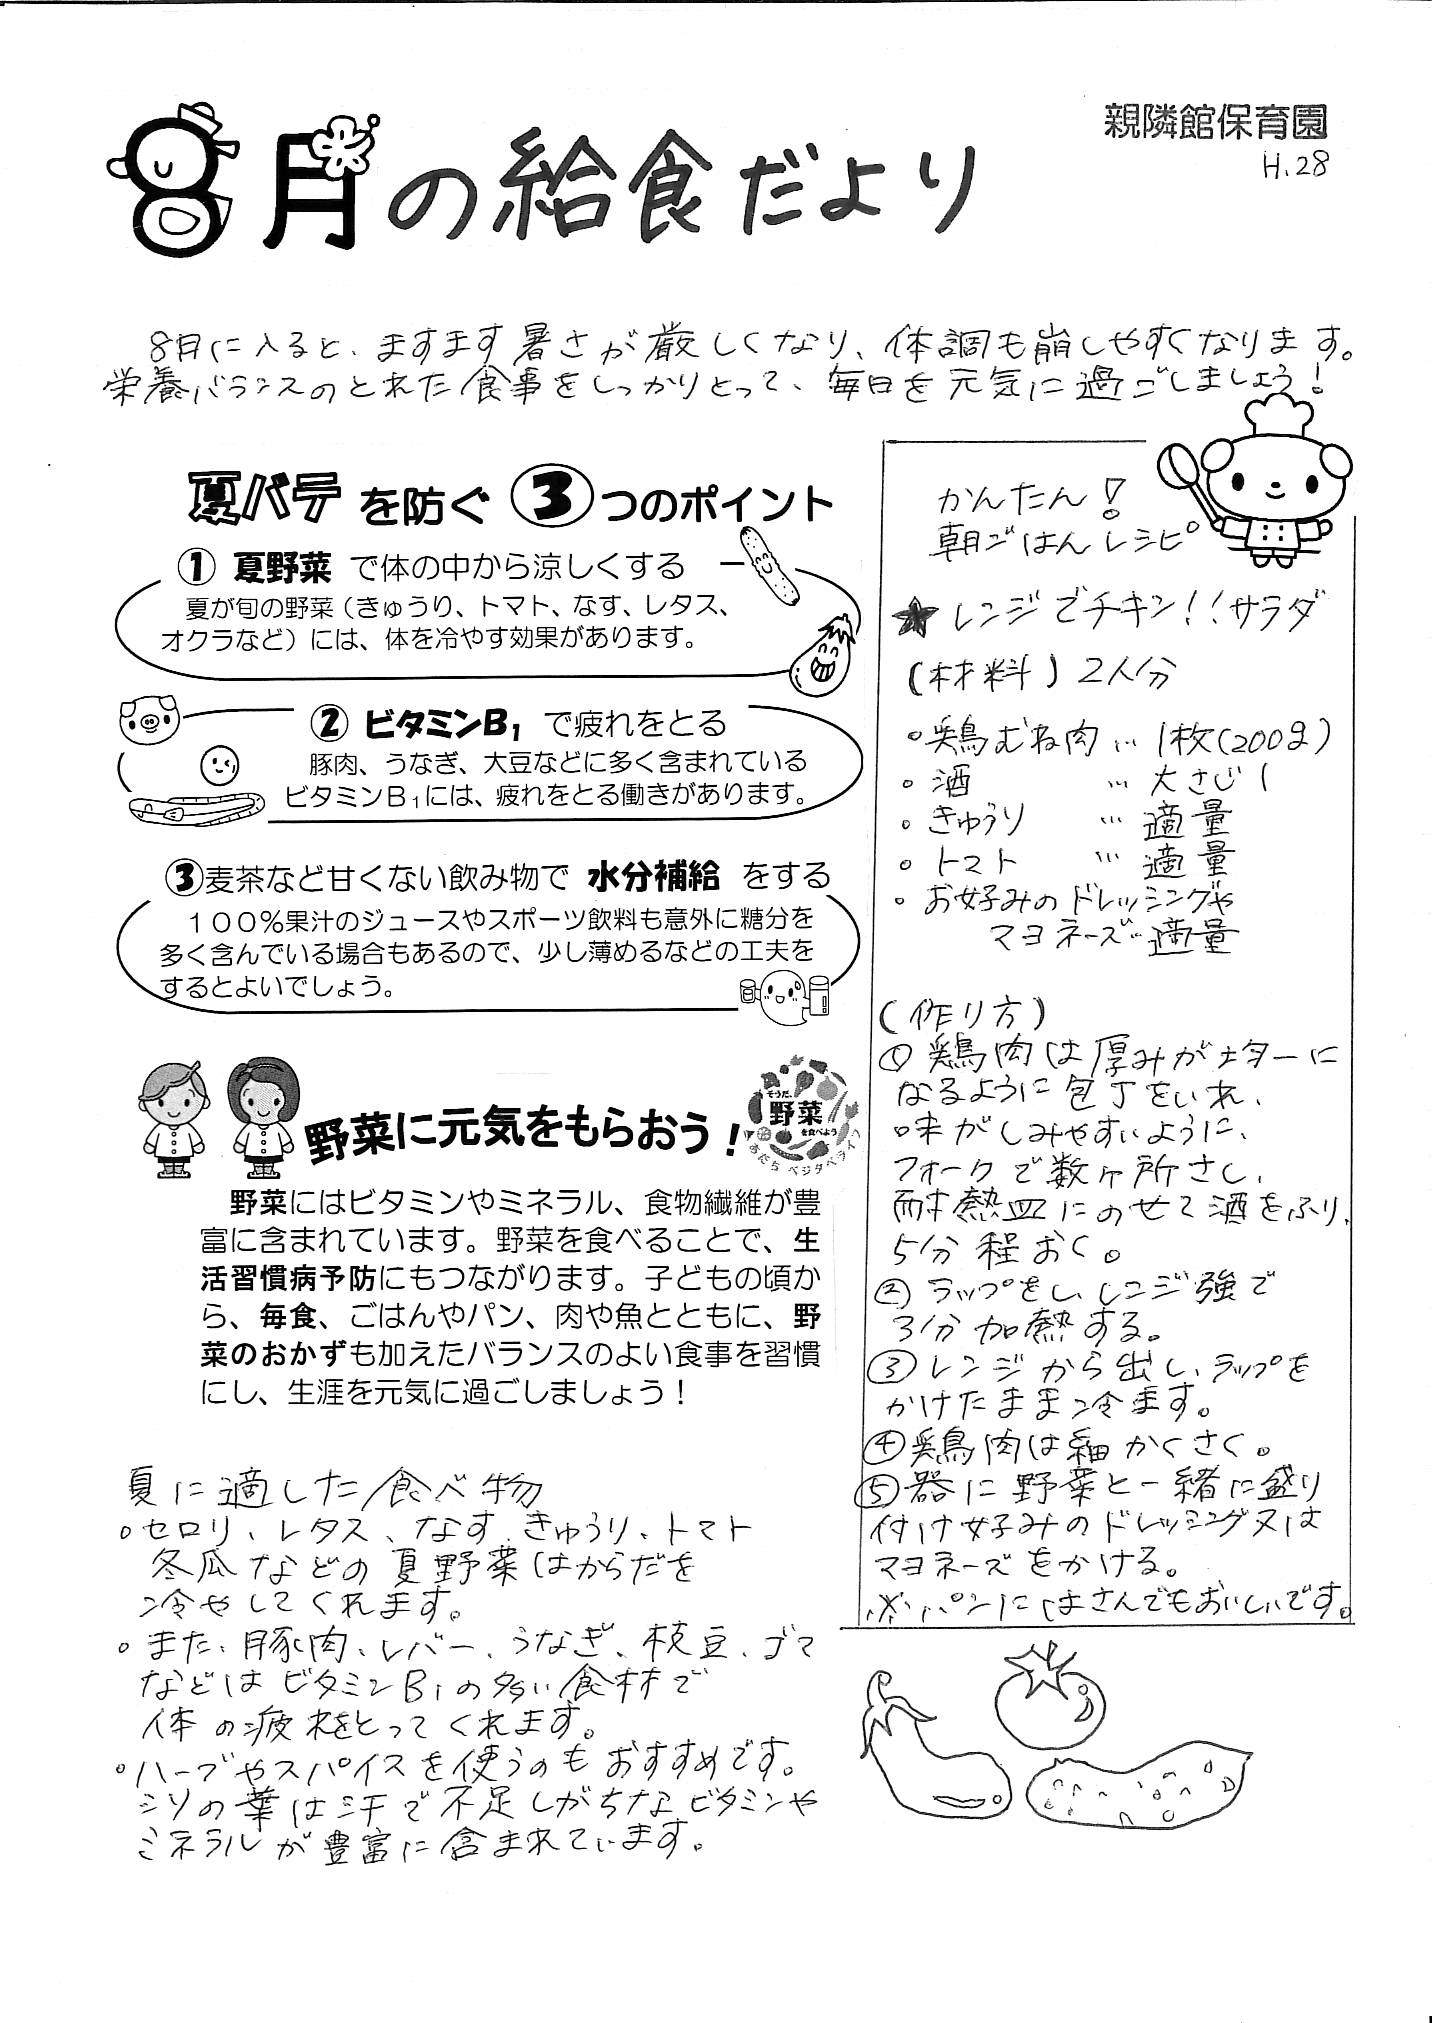 親隣館保育園
H.28
8月の給食だより
8月に入ると、ますます暑さが厳しくなり、体調も崩しやすくなります。
栄養バランスのとれた食事をしっかりとって、毎日を元気に過ごしましょう！
夏バテを防ぐ③つのポイント
①夏野菜で体の中から涼しくする
夏が旬の野菜（きゅうり、トマト、なす、レタス、
オクラなど）には、体を冷やす効果があります。
②ビタミンB₁で疲れをとる
豚肉、うなぎ、大豆などに多く含まれている
ビタミンB₁には、疲れをとる働きがあります。
③麦茶など甘くない飲み物で水分補給をする
１００％果汁のジュースやスポーツ飲料も意外に糖分を
多く含んでいる場合もあるので、少し薄めるなどの工夫を
するとよいでしょう。
野菜に元気をもらおう！
そうだ、
野菜
を食べよう
あだち ベジタベライフ
野菜にはビタミンやミネラル、食物繊維が豊
富に含まれています。野菜を食べることで、生
活習慣病予防にもつながります。子どもの頃か
ら、毎食、ごはんやパン、肉や魚とともに、野
菜のおかずも加えたバランスのよい食事を習慣
にし、生涯を元気に過ごしましょう！
夏に適した食べ物
・セロリ、レタス、なす、きゅうり、トマト
冬瓜などの夏野菜はからだを
冷やしてくれます。
・また、豚肉、レバー、うなぎ、枝豆、ゴマ
などはビタミンB₁の多い食材で
体の疲れをとってくれます。
・ハーブやスパイスを使うのもおすすめです。
シソの葉は汗で不足しがちなビタミンや
ミネラルが豊富に含まれています。
かんたん！
朝ごはんレシピ
★レンジでチキン！！サラダ
（材料）2人分
・鶏むね肉…1枚（200g）
・酒 …大さじ1
・きゅうり …適量
・トマト …適量
・お好みのドレッシングや
マヨネーズ…適量
（作り方）
①鶏肉は厚みが均一に
なるように包丁をいれ、
味がしみやすいように、
フォークで数ヶ所さし、
耐熱皿にのせて酒をふり、
5分程おく。
②ラップをし、レンジ強で
3分加熱する。
③レンジから出し、ラップを
かけたまま冷ます。
④鶏肉は細かくさく。
⑤器に野菜と一緒に盛り
付け好みのドレッシング又は
マヨネーズをかける。
※パンにはさんでもおいしいです。